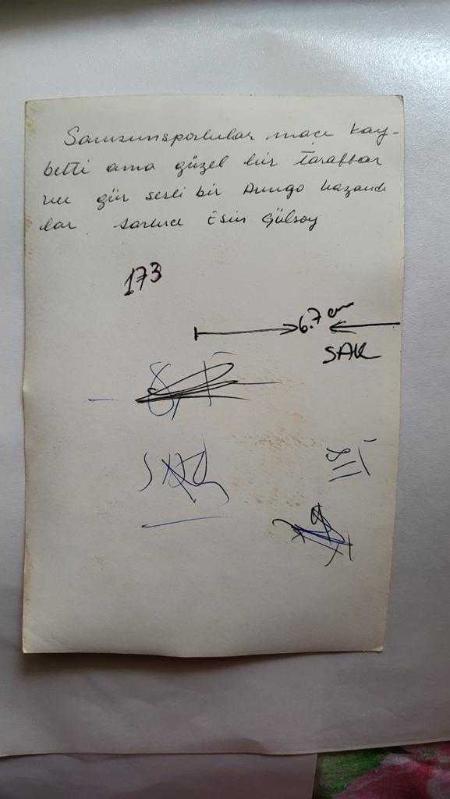 Samsunsporlular maçı kay-
betti ama güzel bir taraftar
ve gür sesli bir Amigo kazandı
lar
Esin Gülsoy
173
6.7 cm
SAK